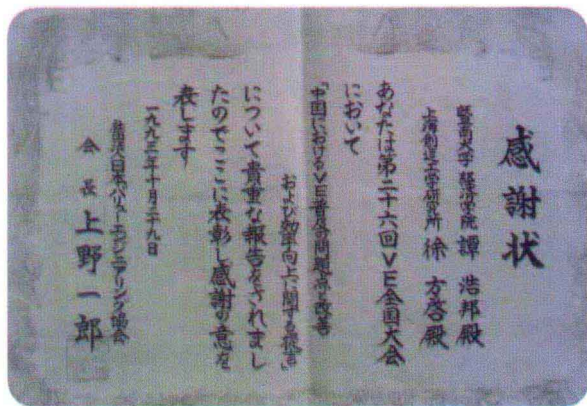 感謝状
暨南大学 経済学院 譚 浩邦殿
上海創造工学研究所 徐 方啓殿
あなたは第二十六回ＶＥ全国大会
において
「中国におけるＶＥ普及の問題点の改善
および効率向上に関する提言」
について貴重な報告をされまし
たのでここに表彰し感謝の意を
表します
一九九三年十月二十九日
社団法人日本バリュー・エンジニアリング協会
会長 上野一郎